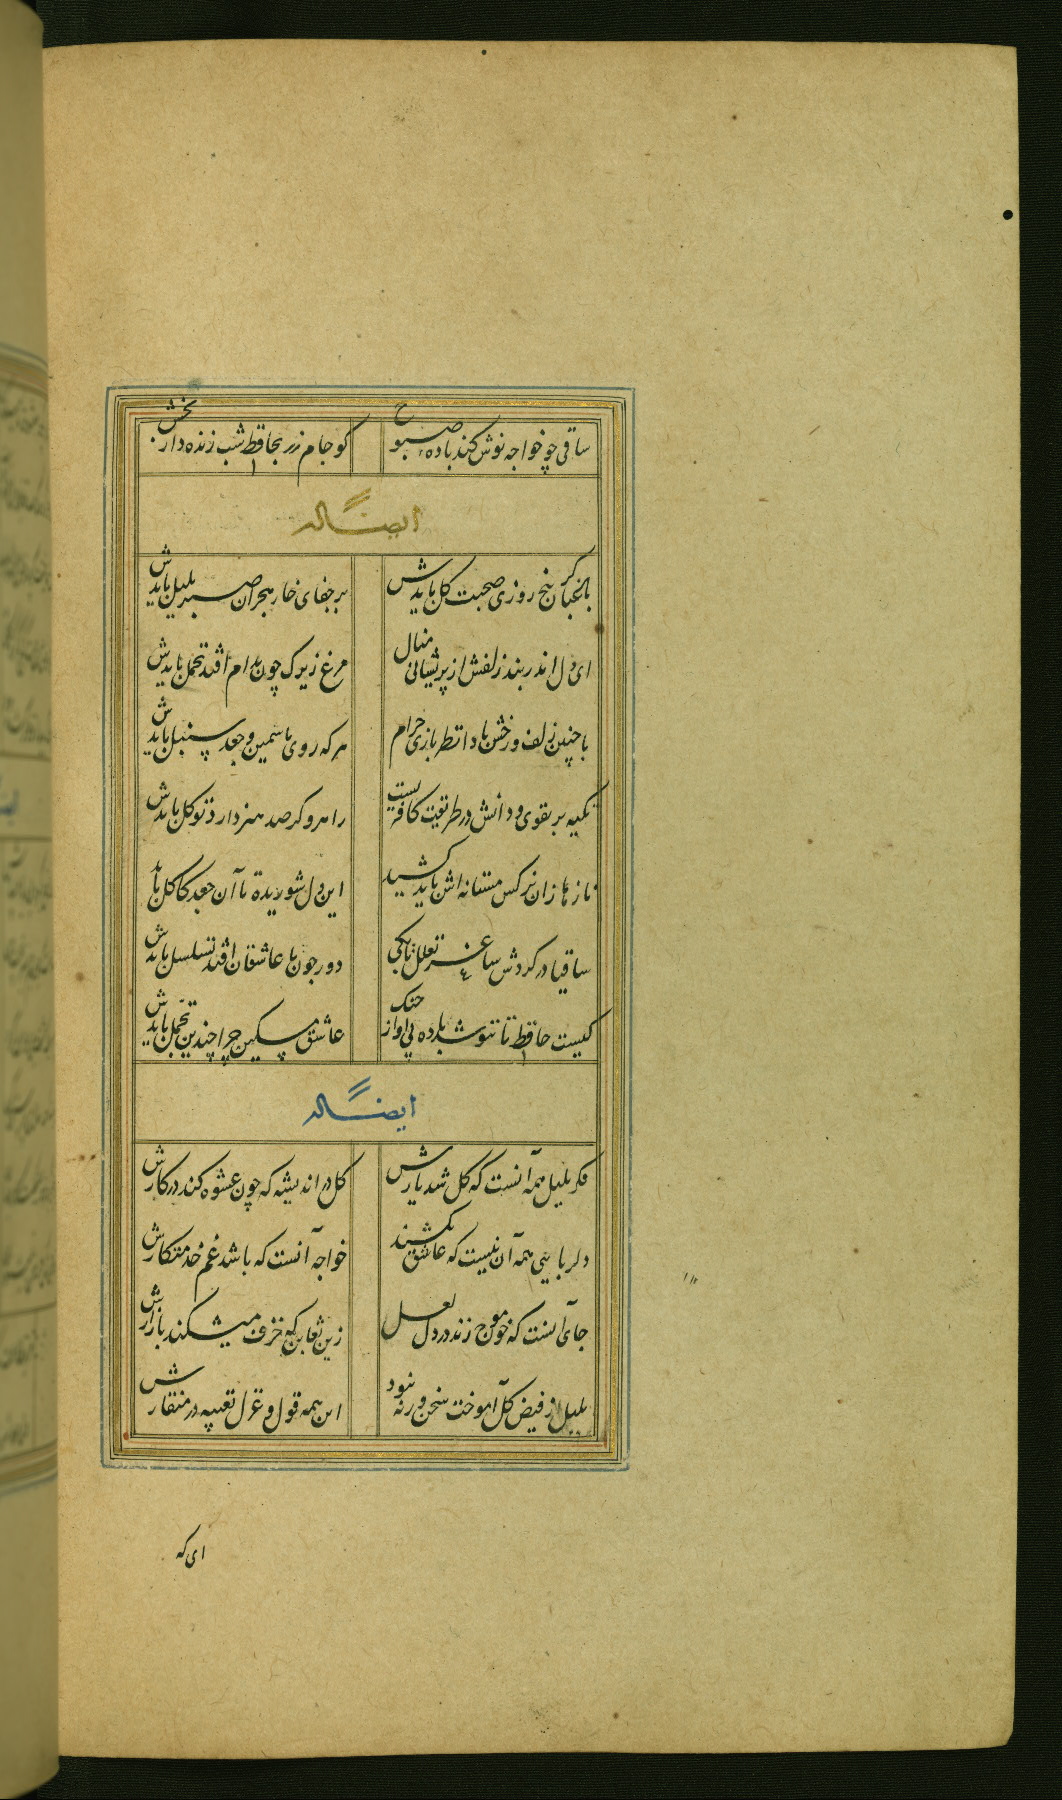 ساقی چو خواجه نوش کند باده صبوح
کو جام زر بحافظ شب زنده دار بخش
ایضاً له
باغبان کر پنج روزی صحبت کل بایدش
بر جفای خار هجران صبر بلبل بایدش
ای دل اندر بند زلفش از پریشانی منال
مرغ زیرک چون بدام افتد تحمل بایدش
با چنین زلف و رخش بادا نظر بازی حرام
هر که روی یاسمین و جعد سنبل بایدش
تکیه بر تقوی و دانش در طریقت کافریست
راهرو کر صد هنر دارد توکل بایدش
نازها زان نرکس مستانه اش باید کشید
این دل شوریده تا آن جعد کاکل باید
ساقیا در کردش ساغر تعلل تا بکی
دور چون با عاشقان افتد تسلسل بایدش
کیست حافظ تا ننوشد باده بی اواز جنک
عاشق مسکین چرا چندین تجمل بایدش
ایضاً له
فکر بلبل همه آنست که کل شد یارش
کل در اندیشه که چون عشوه کند در کارش
دلربایی همه آن نیست که عاشق بکشند
خواجه آنست که باشد غم خدمتکارش
جای آنست که خون موج زند در دل لعل
زین تغابن که خزف میشکند بازارش
بلبل از فیض کل آموخت سخن ورنه نبود
این همه قول و غزل تعبیه در منقارش
ای که